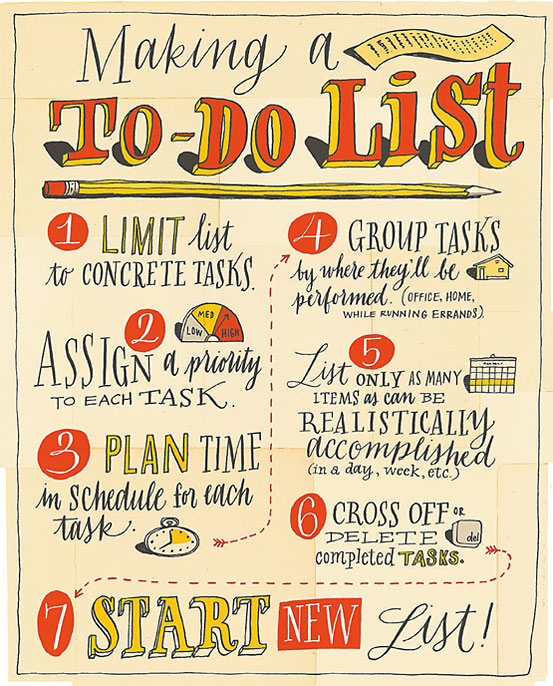 Making a
TO-DO LiST
1 LIMIT list
to CONCRETE TASKS.
2 LOW MED HIGH
ASSIGN a priority
TO EACH TASK.
3 PLAN TIME
in schedule for each
task.
4 GROUP TASKS
by where they'll be
performed. (OFFICE, HOME,
WHILE RUNNING ERRANDS)
5
List ONLY AS MANY
ITEMS as can BE
REALISTICALLY
accomplished
(in a day, week, etc.)
6 CROSS OFF OR
DELETE del
completed TASKS.
7 START NEW List!